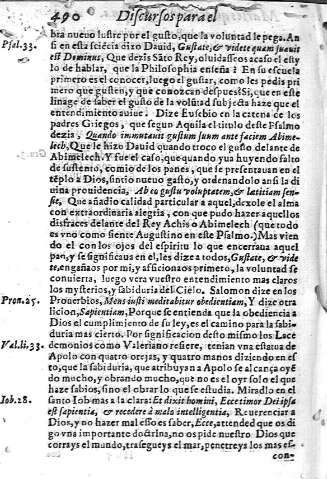 490 Discursos para el
bra nueuo lustre por el gusto, que la voluntad le pega. An
Psal.33. si en esta sciēcia dizo Dauid, Gustate, & videte quam suauis
est Dominus, Que dezis Sāto Rey, oluidasseos acaso el esty
lo de hablar, que la Philosophia enseña? En su escuela
primero es el conocer, luego el gustar, como les pedis pri
mero que gusten, y que conozcan despues? Si, que en este
linage de saber el gusto de la volūtad subjecta haze que el
entendimiento auiue. Dize Eusebio en la catena de los
padres Griegos, que segun Aquila el titulo deste Psalmo
dezia, Quando immutauit gustum suum ante faciem Abime-
lech, Que le hizo Dauid quando troco el gusto delante de
Abimelech. Y fue el caso, que quando yua huyendo falto
de sustento, comio de los panes, que se presentauan en el
tēplo a Dios, sintio nueuo gusto, y ordenandolo ansi la di
uina prouidencia, Ab eo gustu voluptatem, & latitiam sen-
sit, Que añadio calidad particular a aquel, dexole el alma
con extraordinaria alegria, con que pudo hazer aquellos
disfraces delante del Rey Achis o Abimelech (que todo
es vno como siente Augustino en este Psalmo.) Mas vien
do el con los ojos del espiritu lo que encerraua aquel
pan, y se significaua en el, les dize a todos, Gustate, & vide
te, engañaos por mi, y afficionaos primero, la voluntad se
conuierta, luego vera vuestro entendimiento mas claros
los mysterios, y sabiduria del Cielo. Salomon dize en los
Prou.15. Prouerbios, Mens iusti meditabitur obedientiam, Y dize otra
licion, Sapientiam, Porque se entienda que la obediencia a
Dios el cumplimiento de su ley, es el camino para la sabi-
duria mas cierto. Por significacion desto mismo los Lace
Val.li.33. demonios como Valeriano refiere, tenian vna estatua de
Apolo con quatro orejas, y quatro manos diziendo en es-
to, que la sabiduria, que atribuyan a Apolo se alcança oyē
do mucho, y obrando mucho, que no es el oyr solo el que
haze sabios, sino el obrar lo que se estudia. Miradlo en el
Iob.28. santo Iob mas a la clara: Et dixit homini, Ecce timor Dei ipsa
est sapientia, & recedere à malo intelligentia, Reuerenciar a
Dios, y no hazer mal esso es saber, Ecce, attended que os di
go vna importante doctrina, no os pide nuestro Dios que
corrays el mundo, trasegueys el mar, penetreys los mas es-
con-